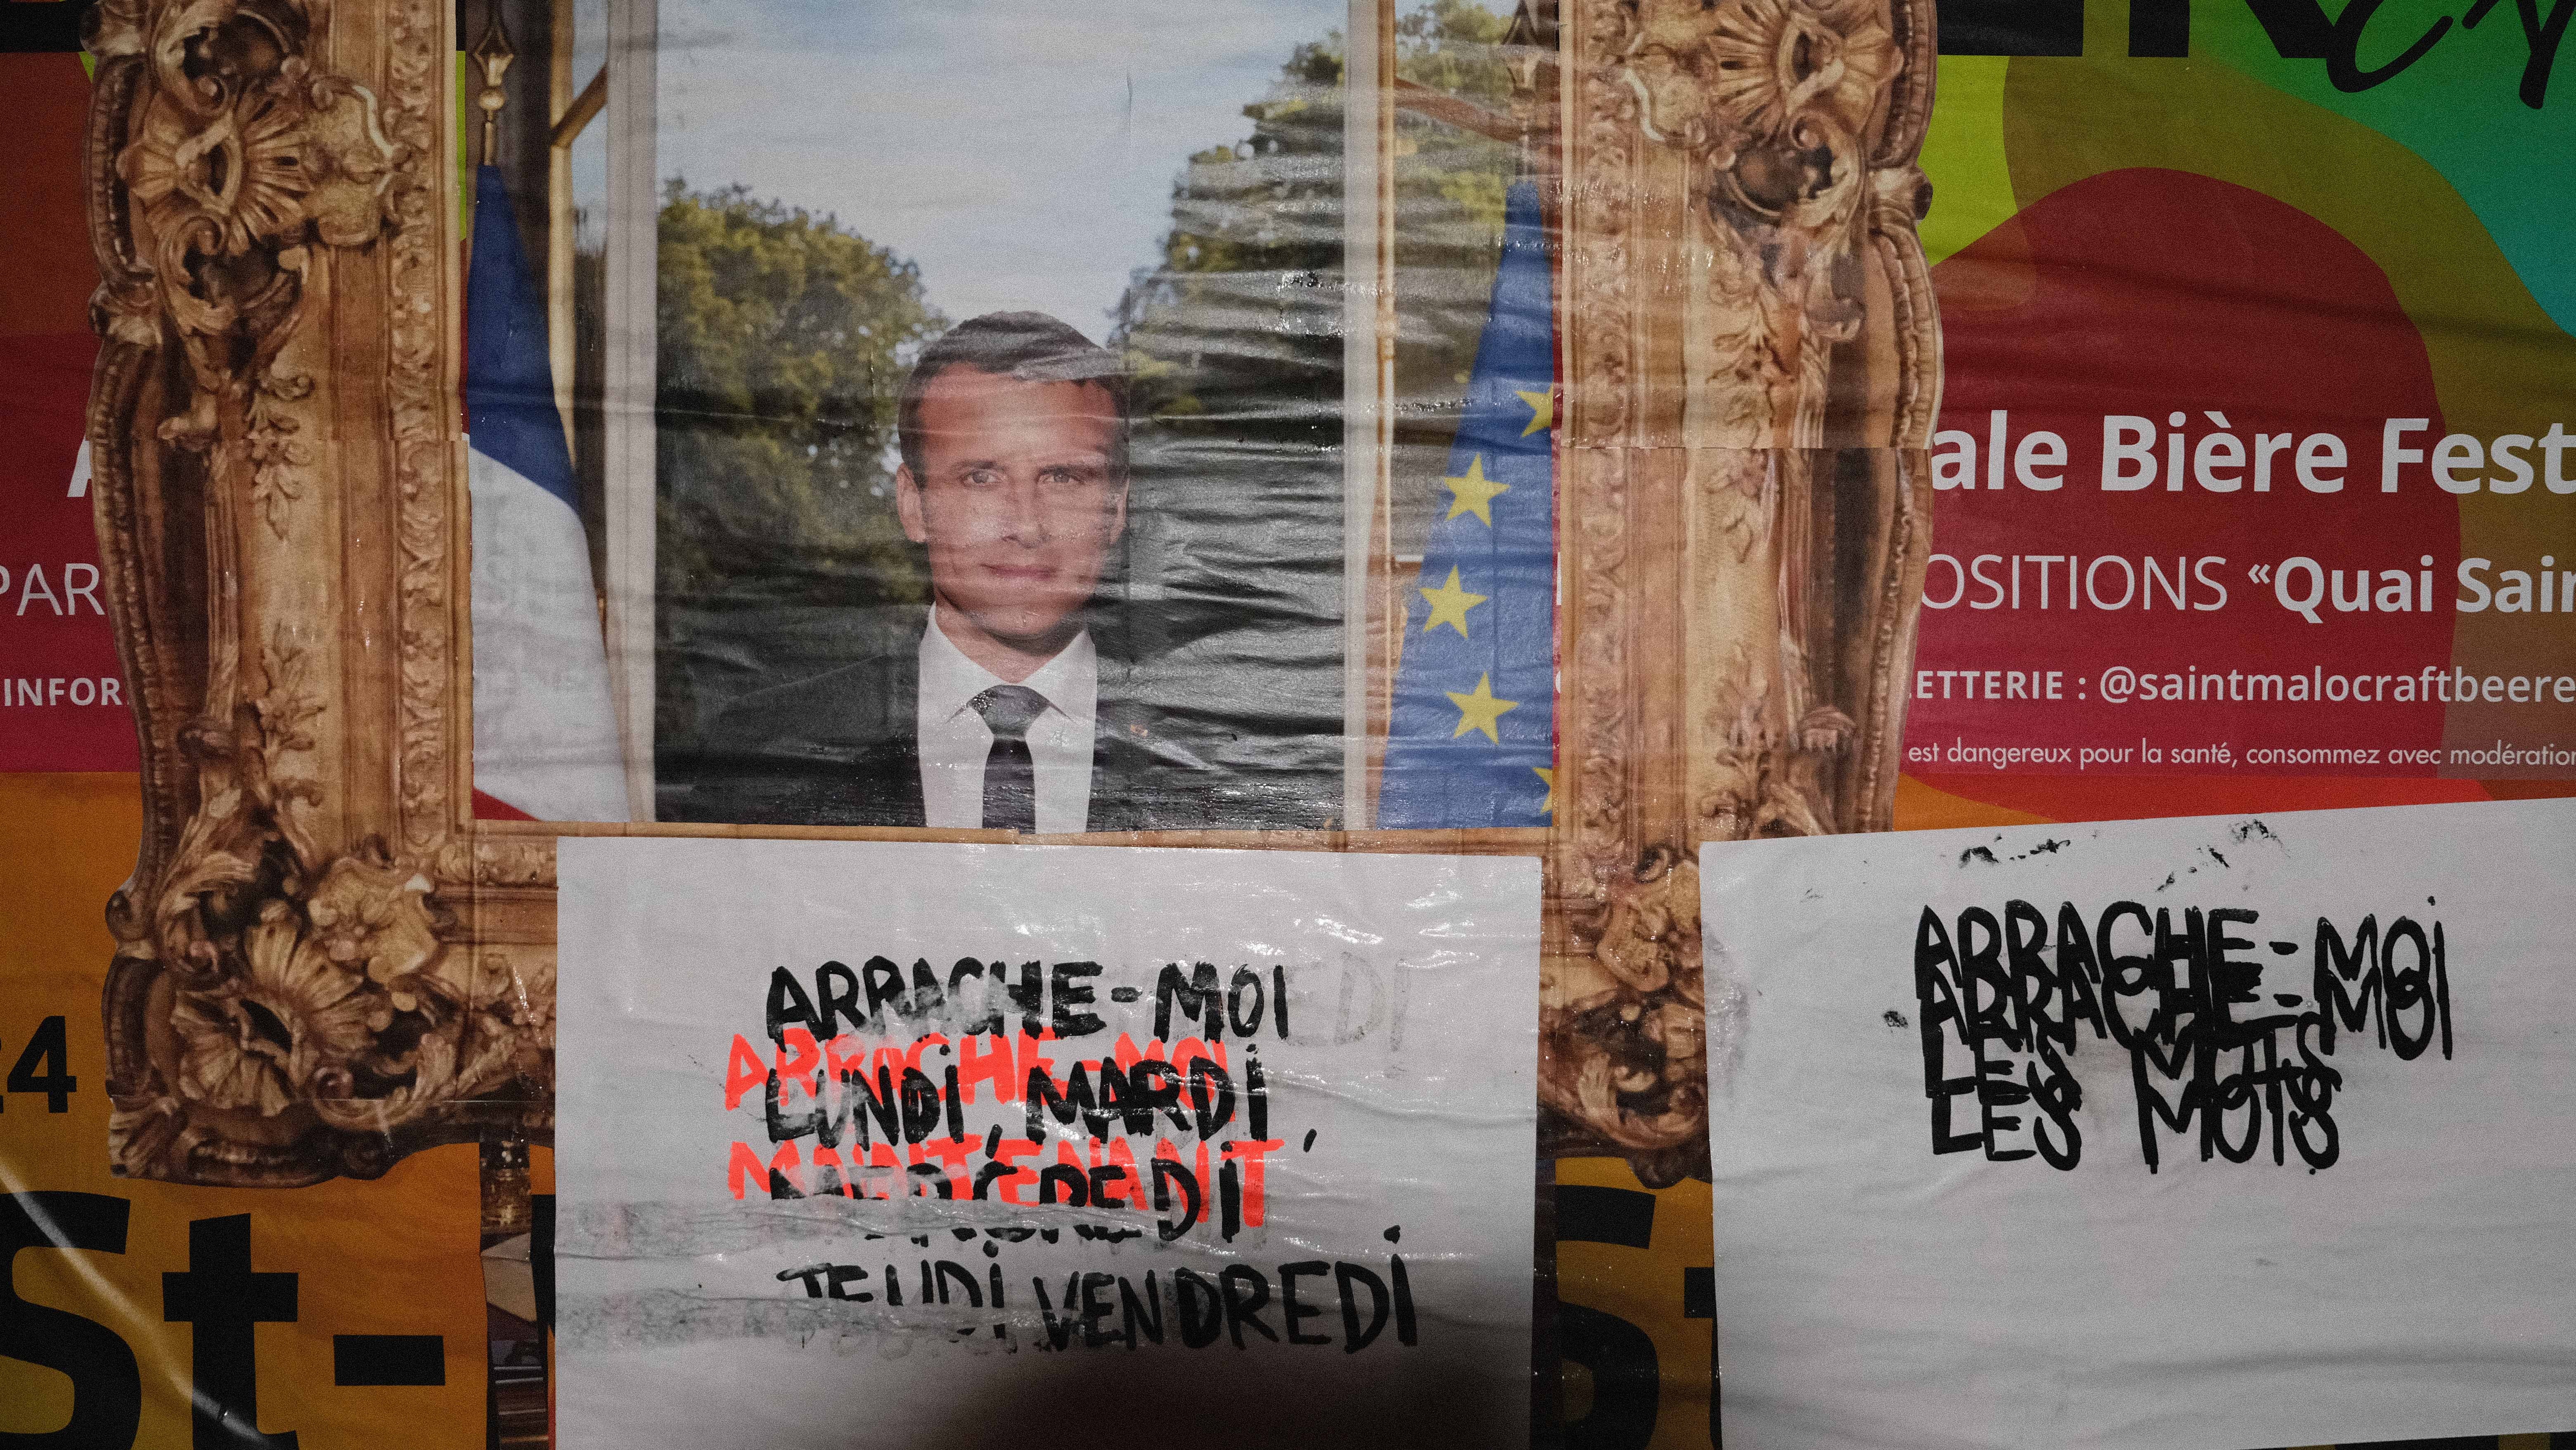 ale Bière Fest
PAR
OSITIONS «Quai Sain
INFOR
LETTERIE : @saintmalocraftbeere
est dangereux pour la santé, consommez avec modération
24
St-
ARRACHE-MOI
ARRACHE-MOI
LUNDI, MARDI,
MAINTENANT
MERCREDI
JEUDI VENDREDI
ARRACHE-MOI
ARRACHE-MOI
LES MOTS
LES MOTS